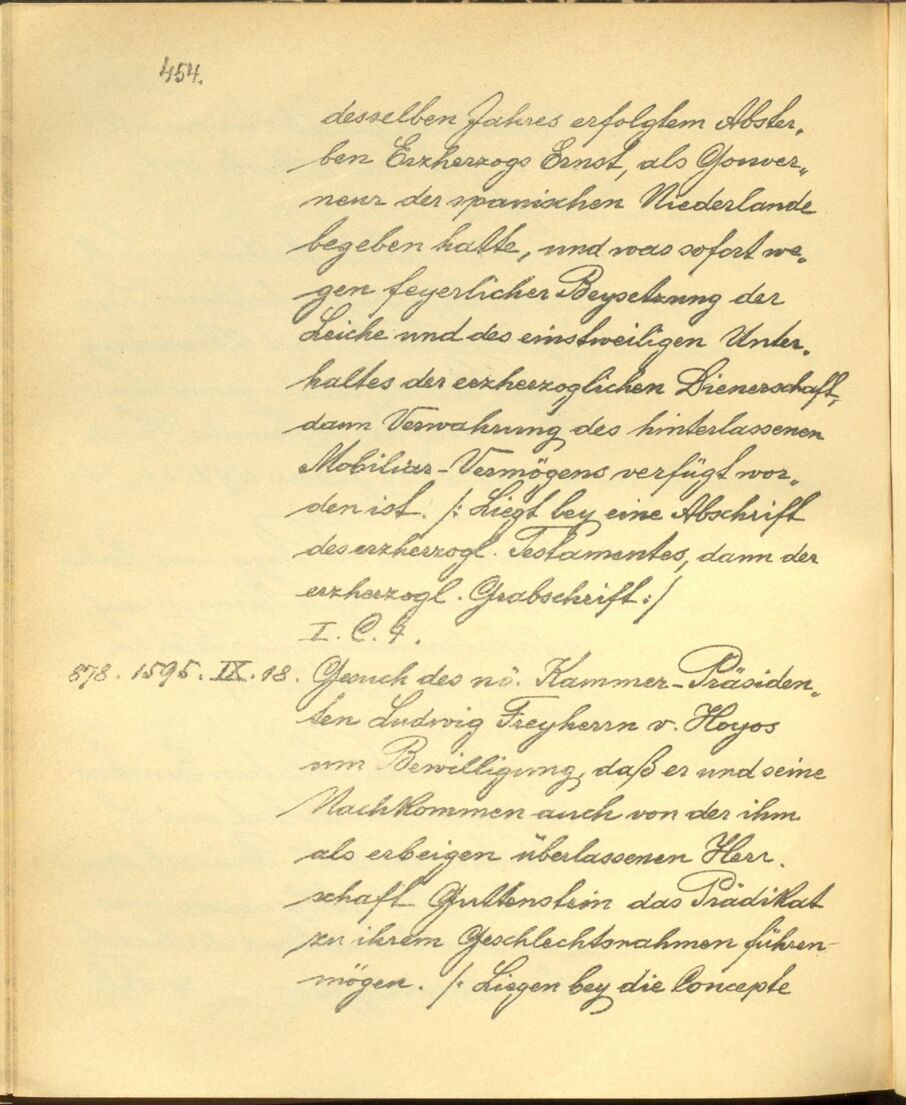 454.
desselben Jahres erfolgtem Abster„
ben Erzherzogs Ernst, als Gouver„
neur der spanischen Niederlande
begeben hatte, und was sofort we„
gen feyerlicher Beysetzung der
Leiche und des einstweiligen Unter„
haltes der erzherzoglichen Dienerschaft,
dann Verwahrung des hinterlassenen
Mobiliar-Vermögens verfügt wor„
den ist. /: Liegt bey eine Abschrift
des erzherzogl. Testamentes, dann der
erzherzogl. Grabschrift :/
I. C. 4.
878. 1595. IX. 18. Gesuch des nö. Kammer-Präsiden„
ten Ludwig Freyherrn v. Hoyos
um Bewilligung, daß er und seine
Nachkommen auch von der ihm
als erbeigen überlassenen Herr„
schaft Guttenstein das Prädikat
zu ihrem Geschlechtsnahmen führen
mögen. /: Liegen bey die Concepte